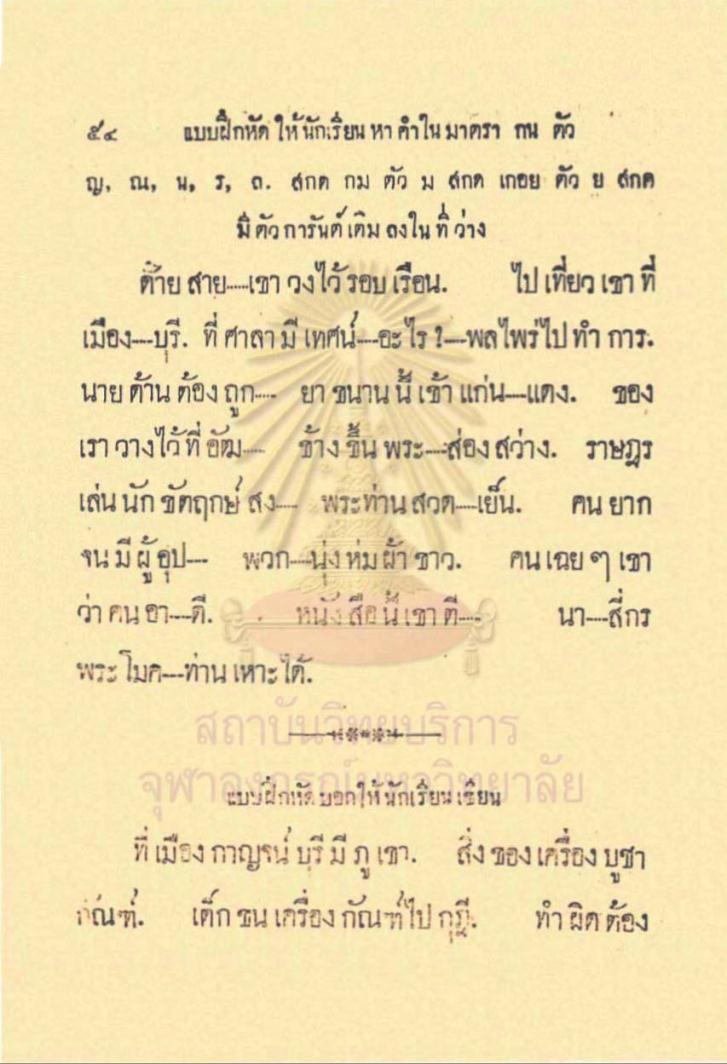 ๕๔ แบบฝึกหัด ให้นักเรียน หา คำใน มาตรา กน ตัว
ญ, ณ, น, ร, ถ. สกด กม ตัว ม สกด เกอย ตัว ย สกด
มี ตัว การันต์ เติม ลงใน ที่ ว่าง
ด้าย สาย----เขา วงไว้ รอบ เรือน. ไป เที่ยว เขา ที่
เมือง---บุรี. ที่ ศาลา มี เทศน์---อะไร ?---พลไพร่ไป ทำ การ.
นาย ด้าน ต้อง ถูก---- ยา ขนาน นี้ เข้า แก่น---แดง. ของ
เรา วางไว้ ที่ อัฒ---- ข้าง ขึ้น พระ---ส่อง สว่าง. ราษฎร
เล่น นัก ขัตฤกษ์ สง---- พระท่าน สวด---เย็น. คน ยาก
จน มี ผู้ อุป--- พวก---นุ่ง ห่ม ผ้า ขาว. คน เฉย ๆ เขา
ว่า คน อา---ดี. หนังสือ นี้ เขา ตี---- นา---สี่กร
พระ โมค---ท่าน เหาะ ได้.
สถาบันวิทยบริการ
จุฬาลงกรณ์มหาวิทยาลัย
แบบฝึกหัด บอกให้ นักเรียน เขียน
ที่ เมือง กาญจน์ บุรี มี ภู เขา. สิ่ง ของ เครื่อง บูชา
กัณฑ์. เด็ก ขน เครื่อง กัณฑ์ ไป กุฎี. ทำ ผิด ต้อง